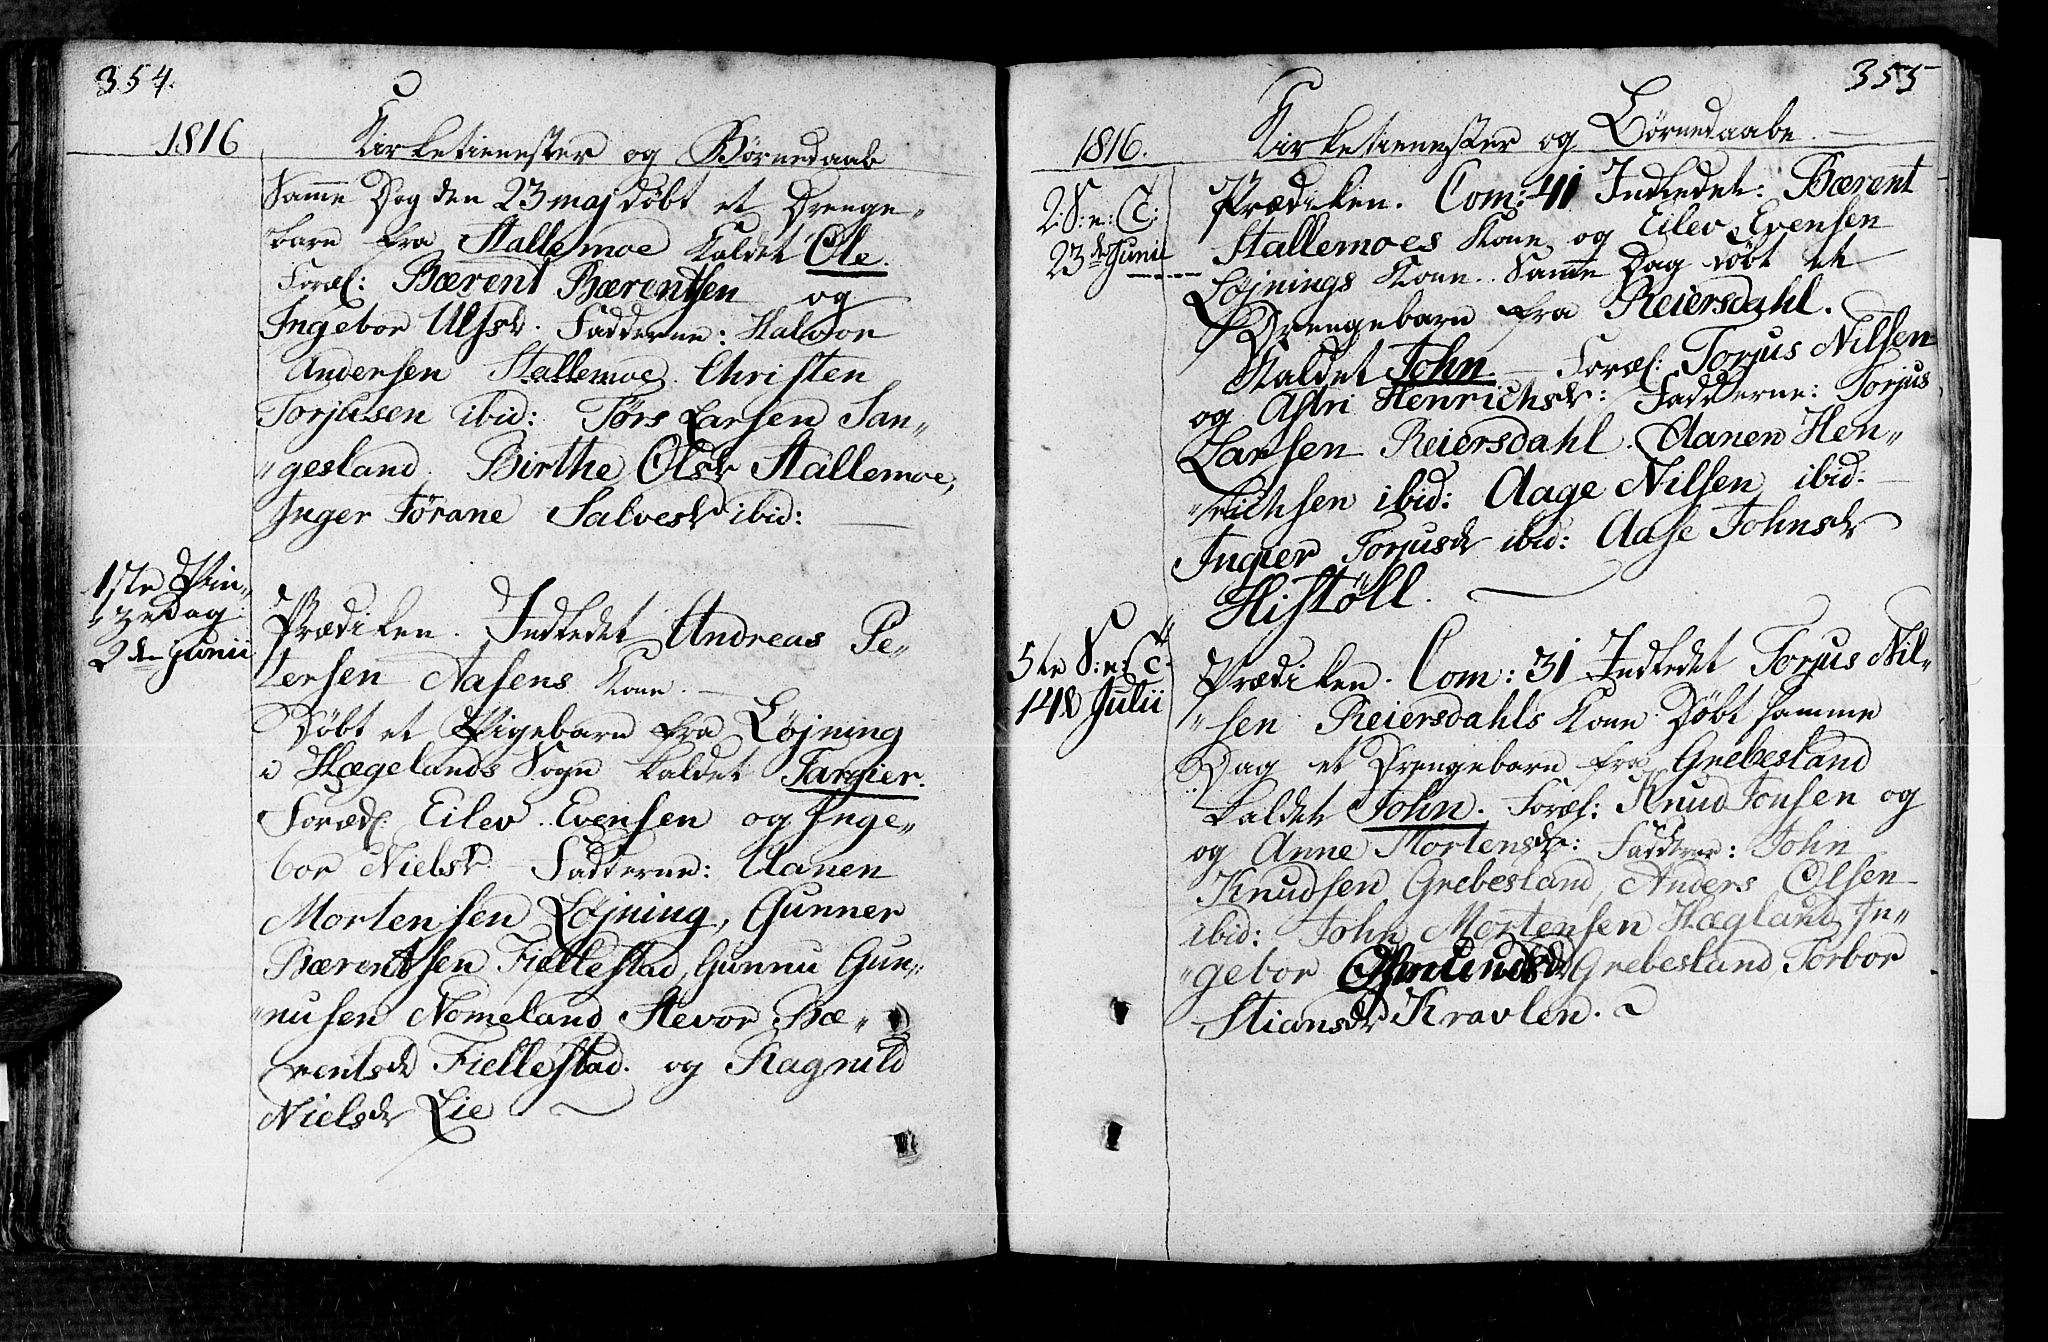 354.
1816 Kirketienester og Børnedaab
Samme Dag den 23 maj døbt et Drenge„
barn fra Stallemoe kaldet Ole.
Foræl: Bærent Bærentsen og
Ingebor Ulfsdr. Fadderne: Halvor
Andersen Stallemoe. Christen
Torjusen ibid: Törs Larsen San„
„gesland. Birthe Olsdr Stallemoe,
Inger Törane Salvesdr ibid:
1ste Pin„
„zedag
2den Junii
Prædiken. Indledet Andreas Pe„
tersen Aasens Kone.
Døbt et Pigebarn fra Løjning
i Hægelands Sogn kaldet Targier.
Foræl: Eilev Evensen og Inge„
bor Nielsdr. Fadderne: Aanen
Mortensen Løjning, Gunner
Bærentsen Fiellestad, Gunnu Gun„
„nusen Nomeland, Stevor Bæ„
rentsdr Fiellestad. og Ragnild
Nielsdr Lie
355
1816. Kirketienester og Børnedaabe.
2: S: e: T:
23de Junii
Prædiken. Com: 41 Indledet: Bærent
Stallemoes Kone og Eilev Evensen
Løjnings Kone. Samme Dag døbt et
Drengebarn fra Reiersdahl.
Kaldet John. Foræl: Torjus Nilsen
og Astri Henrichsdr: Fadderne: Torjus
Larsen Reiersdahl. Aanen Hen„
„richsen ibid: Aage Nilsen ibid:
Ingier Torjusdr ibid: Aase Johnsdr
Histöll.
5te S: e: T:
14de Julii
Prædiken. Com: 31 Indledet Torjus Nil„
„sen Reiersdahls Kone. Døbt samme
Dag et Drengebarn fra Grebesland
kaldet John. Foræl: Knud Jonsen og
og Anne Mortensdr: Fadderne: John
Knudsen Grebesland, Anders Olsen
ibid: John Mortensen Hægland In„
„gebor Osmundsdr Grebesland Torbor
Stiansdr Kravlen.